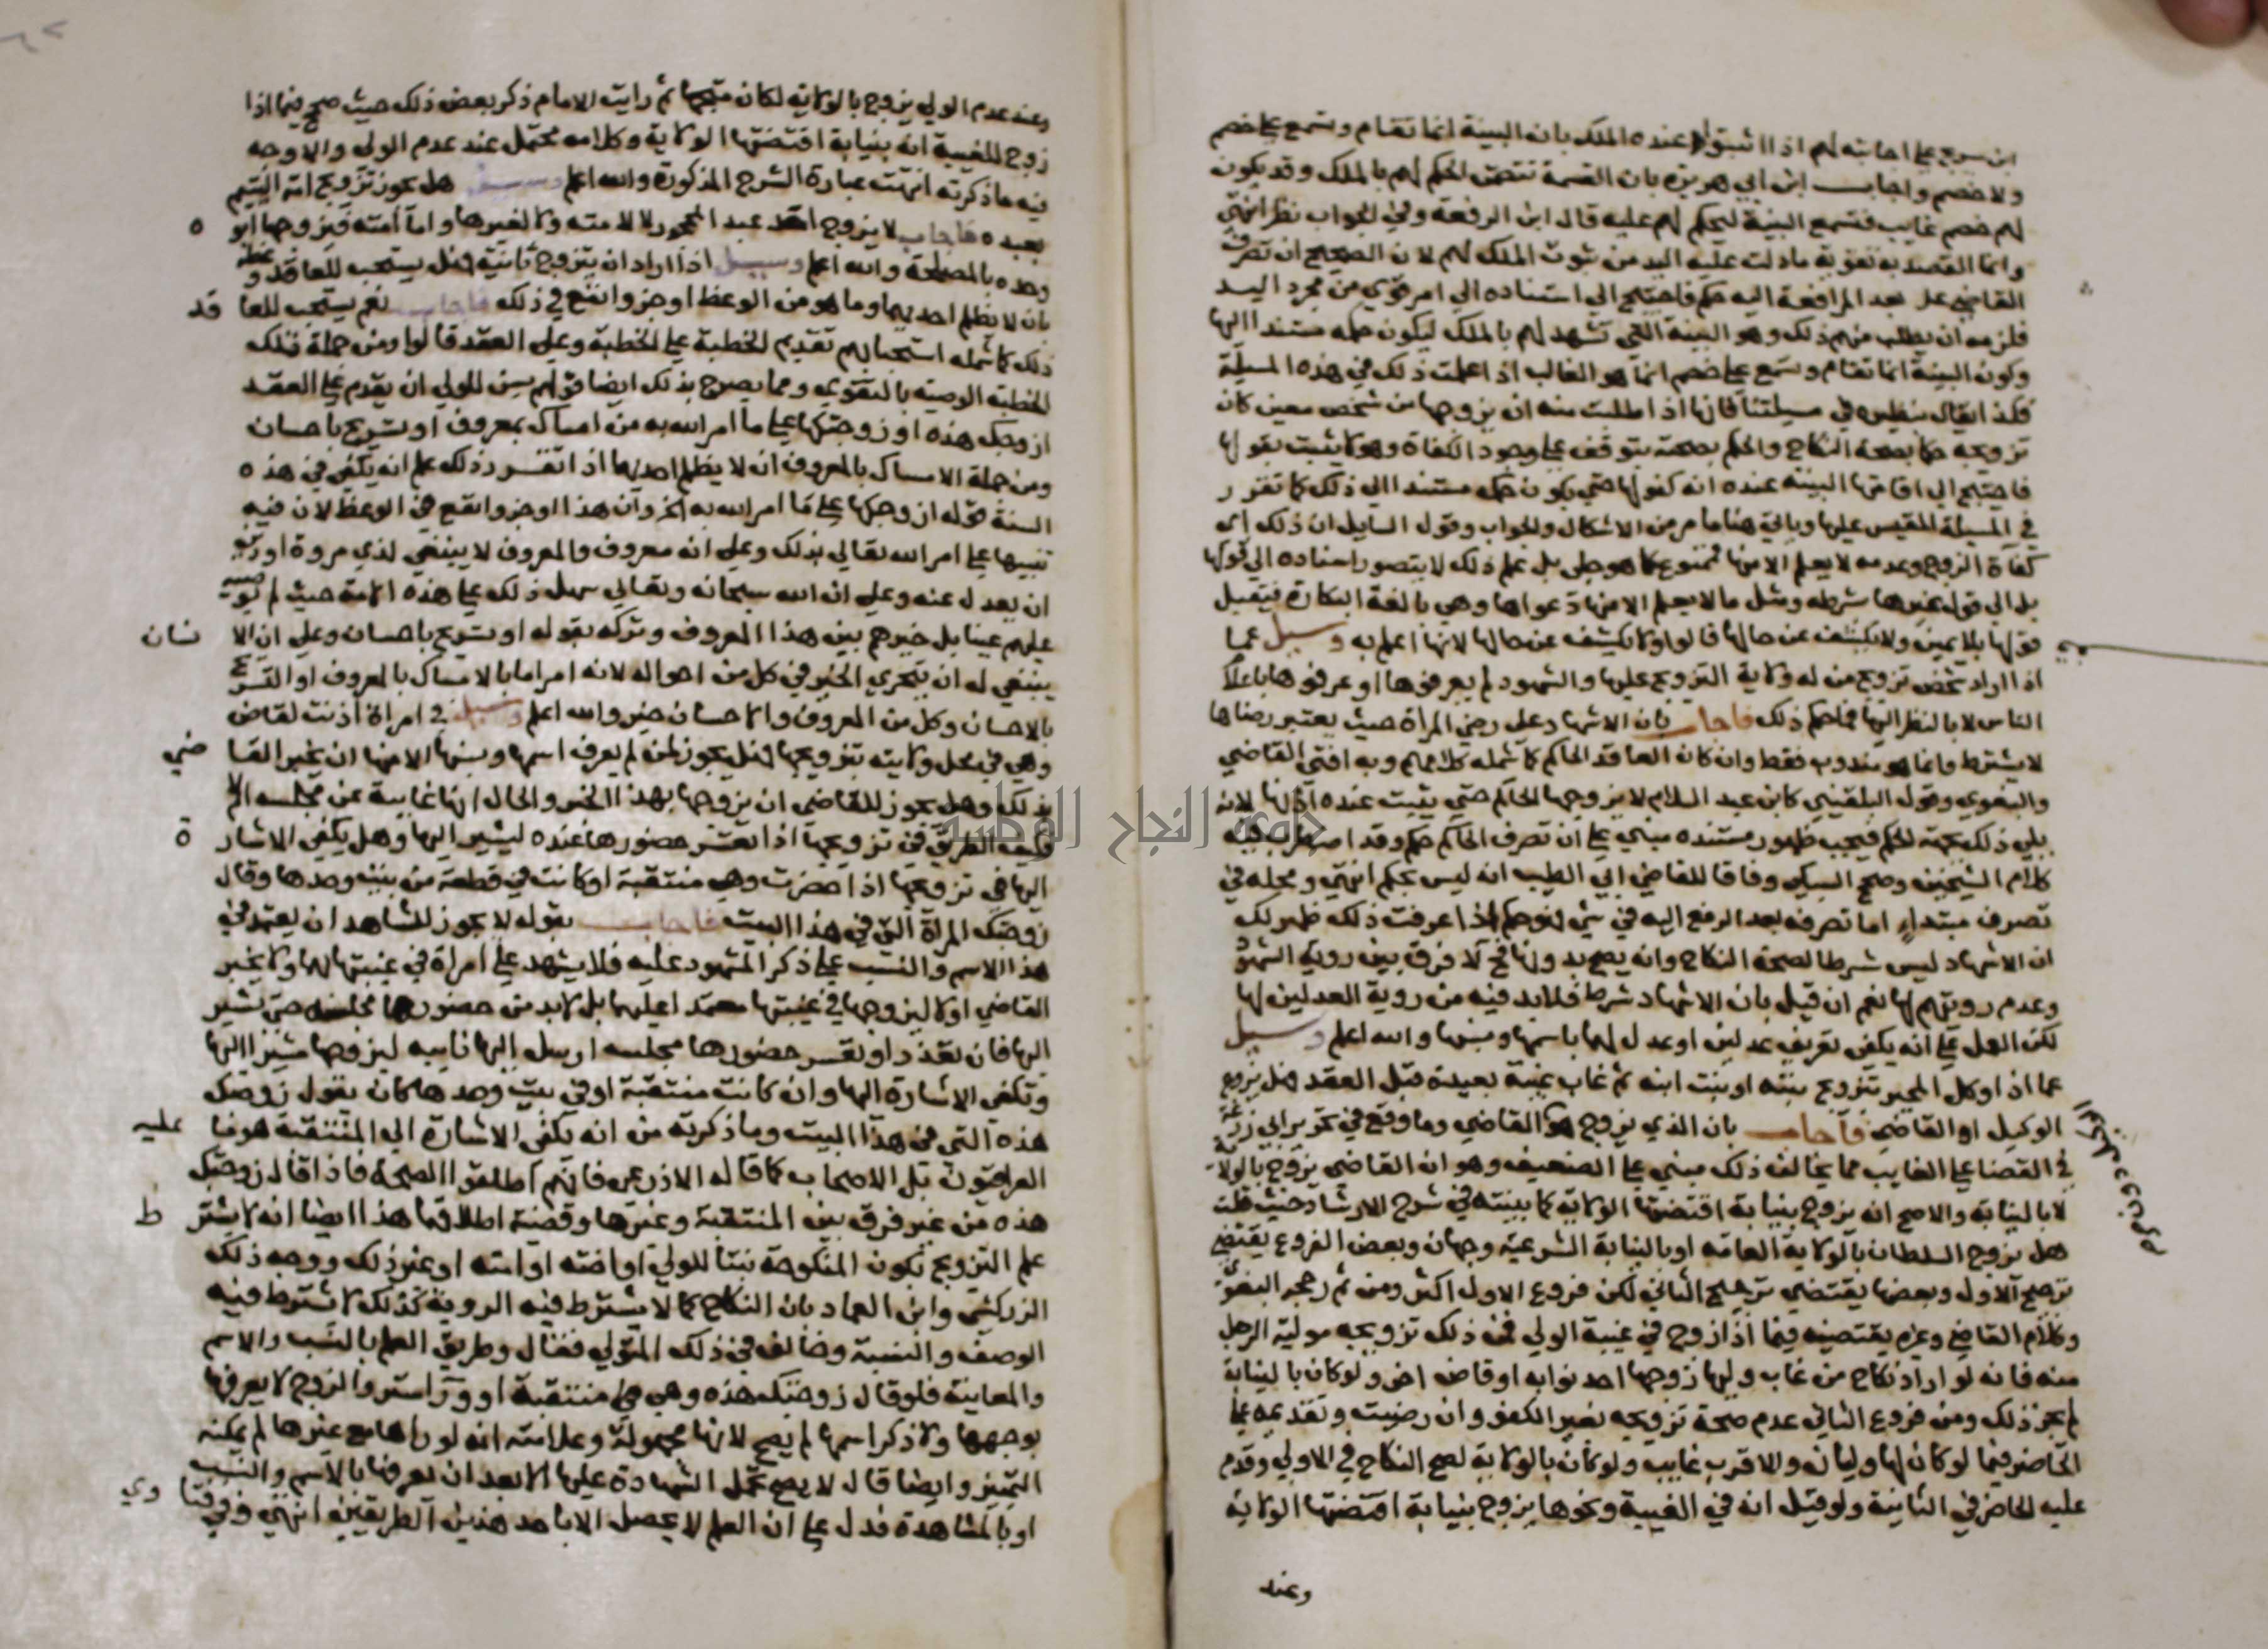 ابن سريج على اجابتهم اذا اثبتوا عنده الملك بان البينة انما تقام وتسمع على خصم
ولا خصم واجاب ابن ابي هريرة بان القسمة تتضمن الحكم لهم بالملك وقد يكون
لهم خصم غايب فتسمع البينة ليحكم لهم عليه قال ابن الرفعة وفي الجواب نظر انتهى
وانما القصد به تقوية ما دلت عليه اليد من ثبوت الملك لهم لان الصحيح ان تصرف
القاضي بعد المرافعة اليه حكم فاحتيج الى استناده الى امر قوي من مجرد اليد
فلزمه ان يطلب منهم ذلك وهو البينة التي تشهد لهم بالملك ليكون حكمه مستندا اليها
وكون البينة انما تقام وتسمع على خصم انما هو الغالب اذا علمت ذلك في هذه المسيلة
فكذا يقال بنظيره في مسيلتنا فانها اذا طلبت منه ان يزوجها من شخص معين كان
تزويجه حكما بصحة النكاح والحكم بصحته يتوقف على وجود الكفاة وهو لا يثبت بقولها
فاحتيج الى اقامتها البينة عنده انه كفو لها حتى يكون حكمه مستندا الى ذلك كما تقرر
في المسيلة المقيس عليها وياتي هنا ما مر من الاشكال والجواب وقول السايل ان ذلك اي
كفاة الزوج وعدمه لا يعلم الا منها ممنوع كما هو جلي بل علم ذلك لا يتصور اسناده الى قولها
بل الى قول غيرها بشرطه ومثل ما لا يعلم الا منها دعواها وهي بالغة البكارة فيقبل
قولها بلا يمين ولا يكشف عن حالها قالوا ولا يكشف عن حالها لانها اعلم به وسيل عما
اذا اراد شخص تزويج من له ولاية التزويج عليها والشهود لم يعرفوها او عرفوها باعلام
الناس لا بالنظر اليها فما حكم ذلك فاجاب بان الاشهاد على رضى المراة حيث يعتبر رضاها
لا يشترط وانما هو مندوب فقط وان كان العاقد الحاكم كما شمله كلامهم وبه افتى القاضي
والبغوي وقول البلقيني كابن عبد السلام لا يزوجها الحاكم حتى يثبت عنده اذنها لانه
يلي ذلك بجهة الحكم فيجب ظهور مستنده مبني على ان تصرف الحاكم حكم وقد اضطرب فيه
كلام الشيخين وصحح السبكي وفاقا للقاضي ابي الطيب انه ليس بحكم انتهى ومحله في
تصرف مبتدا اما تصرفه بعد الرفع اليه في شي فهو حكم اذا عرفت ذلك ظهر لك
ان الاشهاد ليس شرطا لصحة النكاح وانه يصح بدونها فح لا فرق بين روية الشهود
وعدم رويتهم لها نعم ان قيل بان الاشهاد شرط فلا بد فيه من روية العدلين لها
لكن العمل على انه يكفي تعريف عدلين او عدل لها باسمها ونسبها والله اعلم وسيل
عما اذا وكل المجبر بتزويج بنته او بنت ابنه ثم غاب غيبة بعيدة قبل العقد فهل يزوج
الوكيل او القاضي فاجاب بان الذي يزوج هو القاضي وما وقع في تحرير ابي زرعة
في القضا على الغايب مما يخالف ذلك مبني على الضعيف وهو ان القاضي يزوج بالولاية
لا بالنيابة والاصح انه يزوج بنيابة اقتضتها الولاية كما بينته في شرح الارشاد حيث قلت
هل يزوج السلطان بالولاية العامة او بالنيابة الشرعية وجهان وبعض الفروع يقتضي
ترجيح الاول وبعضها يقتضي ترجيح الثاني لكن فروع الاول اكثر ومن ثم رجحه البغوي
وكلام القاضي وغيره يقتضيه فيما اذا زوج في غيبة الولي فمن ذلك تزويجه مولية الرجل
منه فانه لو اراد نكاح من غاب وليها زوجها احد نوابه او قاض اخر ولو كان بالنيابة
لم يجز ذلك ومن فروع الثاني عدم صحة تزويجه بغير الكفو وان رضيت وتقديمه على
الحاضر فيما لو كان لها وليان والاقرب غايب ولو كان بالولاية لصح النكاح في الاولى وقدم
عليه الحاضر في الثانية ولو قيل انه في الغيبة ونحوها يزوج بنيابة اقتضتها الولاية
وعند
وعند عدم الولي يزوج بالولاية لكان متجها ثم رايت الامام ذكر بعض ذلك حيث صحح فيما اذا
زوج للغيبة انه بنيابة اقتضتها الولاية وكلامه محتمل عند عدم الولي والاوجه
فيه ما ذكرته انتهت عبارة الشرح المذكورة والله اعلم وسيل هل يجوز تزويج امة اليتيم
بعبده فاجاب لا يزوج احد عبد المحجور لا لامته ولا لغيرها واما امته فيزوجها ابو ه
وجده بالمصلحة والله اعلم وسيل اذا اراد ان يتزوج ثانية فهل يستحب للعاقد وعظه
بان لا يظلم احديهما وما هو من الوعظ اوجز وانفع في ذلك فاجاب نعم يستحب للعا قد
ذلك كما شمله استحبابهم تقديم الخطبة على الخطبة وعلى العقد قالوا ومن جملة تلك
الخطبة الوصية بالتقوى ومما يصرح بذلك ايضا قولهم يسن للولي ان يقدم على العقد
ازوجك هذه او زوجتكها على ما امر الله به من امساك بمعروف او تسريح باحسان
ومن جملة الامساك بالمعروف ان لا يظلم احديهما اذا تقرر ذلك علم انه يكفي في هذه
السنة قوله ازوجكها على ما امر الله به الخ وان هذا اوجز وانفع في الوعظ لان فيه
تنبيها على امر الله تعالى بذلك وعلى انه معروف والمعروف لا ينبغي لذي مروة او دين
ان يعدل عنه وعلى ان الله سبحانه وتعالى سهل ذلك على هذه الامة حيث لم يوجبه
عليهم عينا بل خيرهم بين هذا المعروف وتركه بقوله او تسريح باحسان وعلى ان الا نسان
ينبغي له ان يتحرى الخير في كل من احواله لانه امر اما بالامساك بالمعروف او التسريح
بالاحسان وكل من المعروف والاحسان خير والله اعلم وسيل في امراة اذنت لقاض
وهي في محل ولايته بتزويجها فهل يجوز لمن لم يعرف اسمها ونسبها الا منها ان يخبر القا ضي
بذلك وهل يجوز للقاضي ان يزوجها بهذا الخبر والحال انها غايبة عن مجلسه ام لا
فكيف الطريق في تزويجها اذا تعسر حضورها عنده ليشير اليها وهل يكفي الاشار ة
اليها في تزويجها اذا حضرت وهي منتقبة او كانت في قطعة من بيت وحدها وقال
زوجتك المراة التي في هذا البيت فاجاب بقوله لا يجوز للشاهد ان يعتمد في
هذا الاسم والنسب على ذكر المشهود عليه فلا يشهد على امراة في غيبتها بهما ولا يخبر
القاضي اولا ليزوجها في غيبتها معتمدا عليهما بل لا بد من حضورها مجلسه حتى تشير
اليها فان تعذر او تعسر حضورها مجلسه ارسل اليها نايبه ليزوجها مشيرا اليها
وتكفي الاشارة اليها وان كانت منتقبة او في بيت وحدها كان يقول زوجتك
هذه التي في هذا البيت وما ذكرته من انه يكفي الاشارة الى المنتقبة هو ما عليه
العراقيون بل الاصحاب كما قاله الاذرعي فانهم اطلقوا الصحة فاذا قال زوجتك
هذه من غير فرق بين المنتقبة وغيرها وقضية اطلاقهما هذا ايضا انه لا يشتر ط
علم التزويج بكون المنكوحة بنتا للولي او اخته او امته او غير ذلك ووجه ذلك
الزركشي وابن العماد بان النكاح كما لا يشترط فيه الروية كذلك لا يشترط فيه
الوصف والنسبة وخالف في ذلك المتولي فقال وطريق العلم بالنسب والاسم
والمعاينة فلو قال زوجتك هذه وهي منتقبة او وراستر والزوج لا يعرفها
بوجهها ولا ذكر اسمها لم يصح لانها مجهولة وعلامته انه لو راها مع غيرها لم يمكنه
التميز وايضا قال لا يصح تحمل الشهادة عليها الا بعد ان يعرفها بالاسم والنسب
او بالمشاهدة فدل على ان العلم لا يحصل الا باحد هذين الطريقين انتهى وفي فتا وي
جامعة النجاح الوطنية